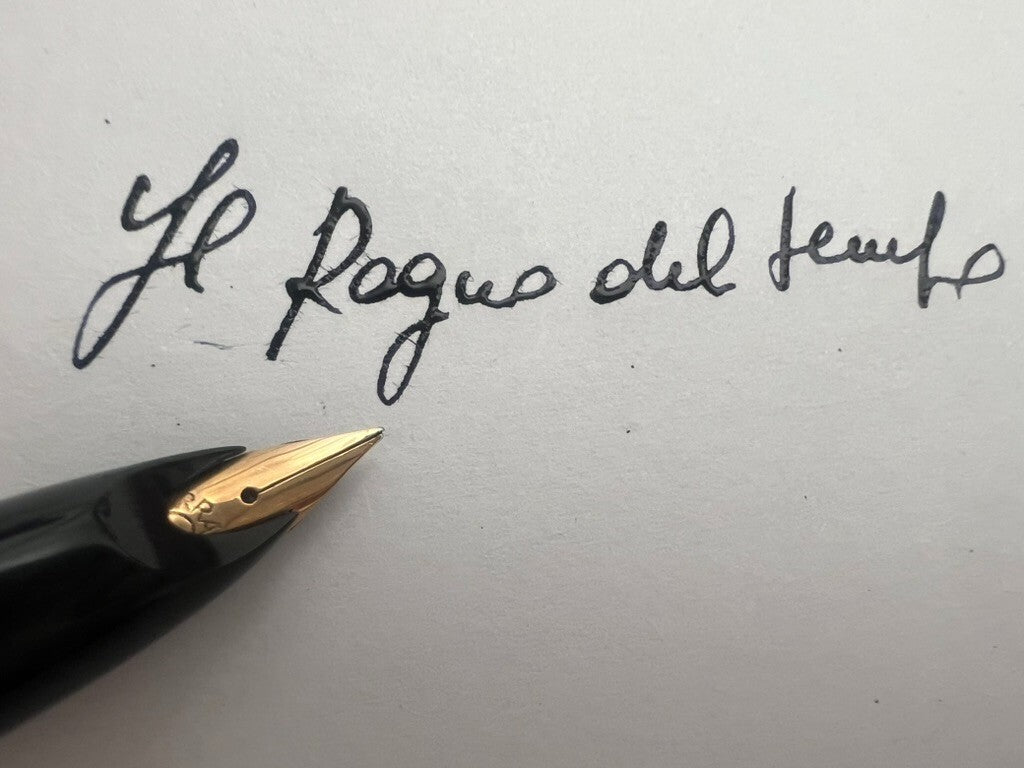 Il Ragno del tempo